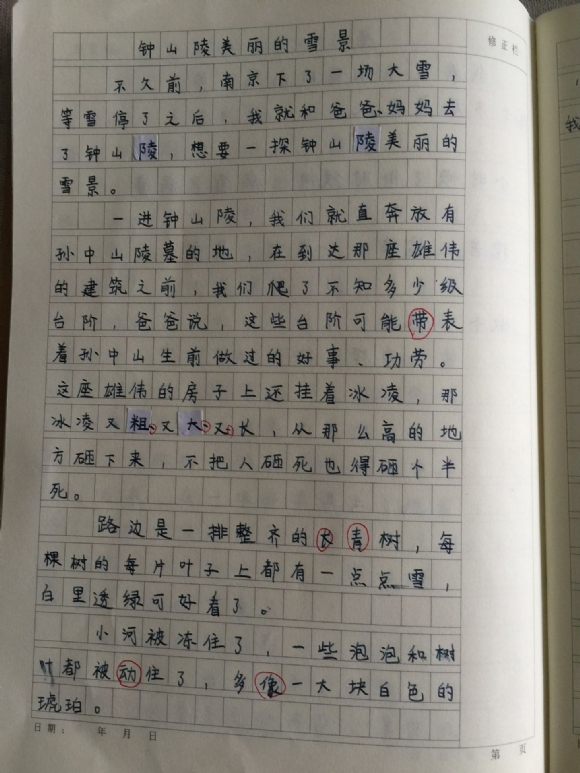 修正栏
钟山陵美丽的雪景
不久前，南京下了一场大雪，
等雪停了之后，我就和爸爸、妈妈去
了钟山陵，想要一探钟山陵美丽的
雪景。
一进钟山陵，我们就直奔放有
孙中山陵墓的地，在到达那座雄伟
的建筑之前，我们爬了不知多少级
台阶，爸爸说，这些台阶可能带表
着孙中山生前做过的好事、功劳。
这座雄伟的房子上还挂着冰凌，那
冰凌又粗、又大、又长，从那么高的地
方砸下来，不把人砸死也得砸个半
死。
路边是一排整齐的长青树，每
棵树的每片叶子上都有一点点雪，
白里透绿可好看了。
小河被冻住了，一些泡泡和树
叶都被动住了，多像一大块白色的
琥珀。
日期： 年 月 日
第 页
我